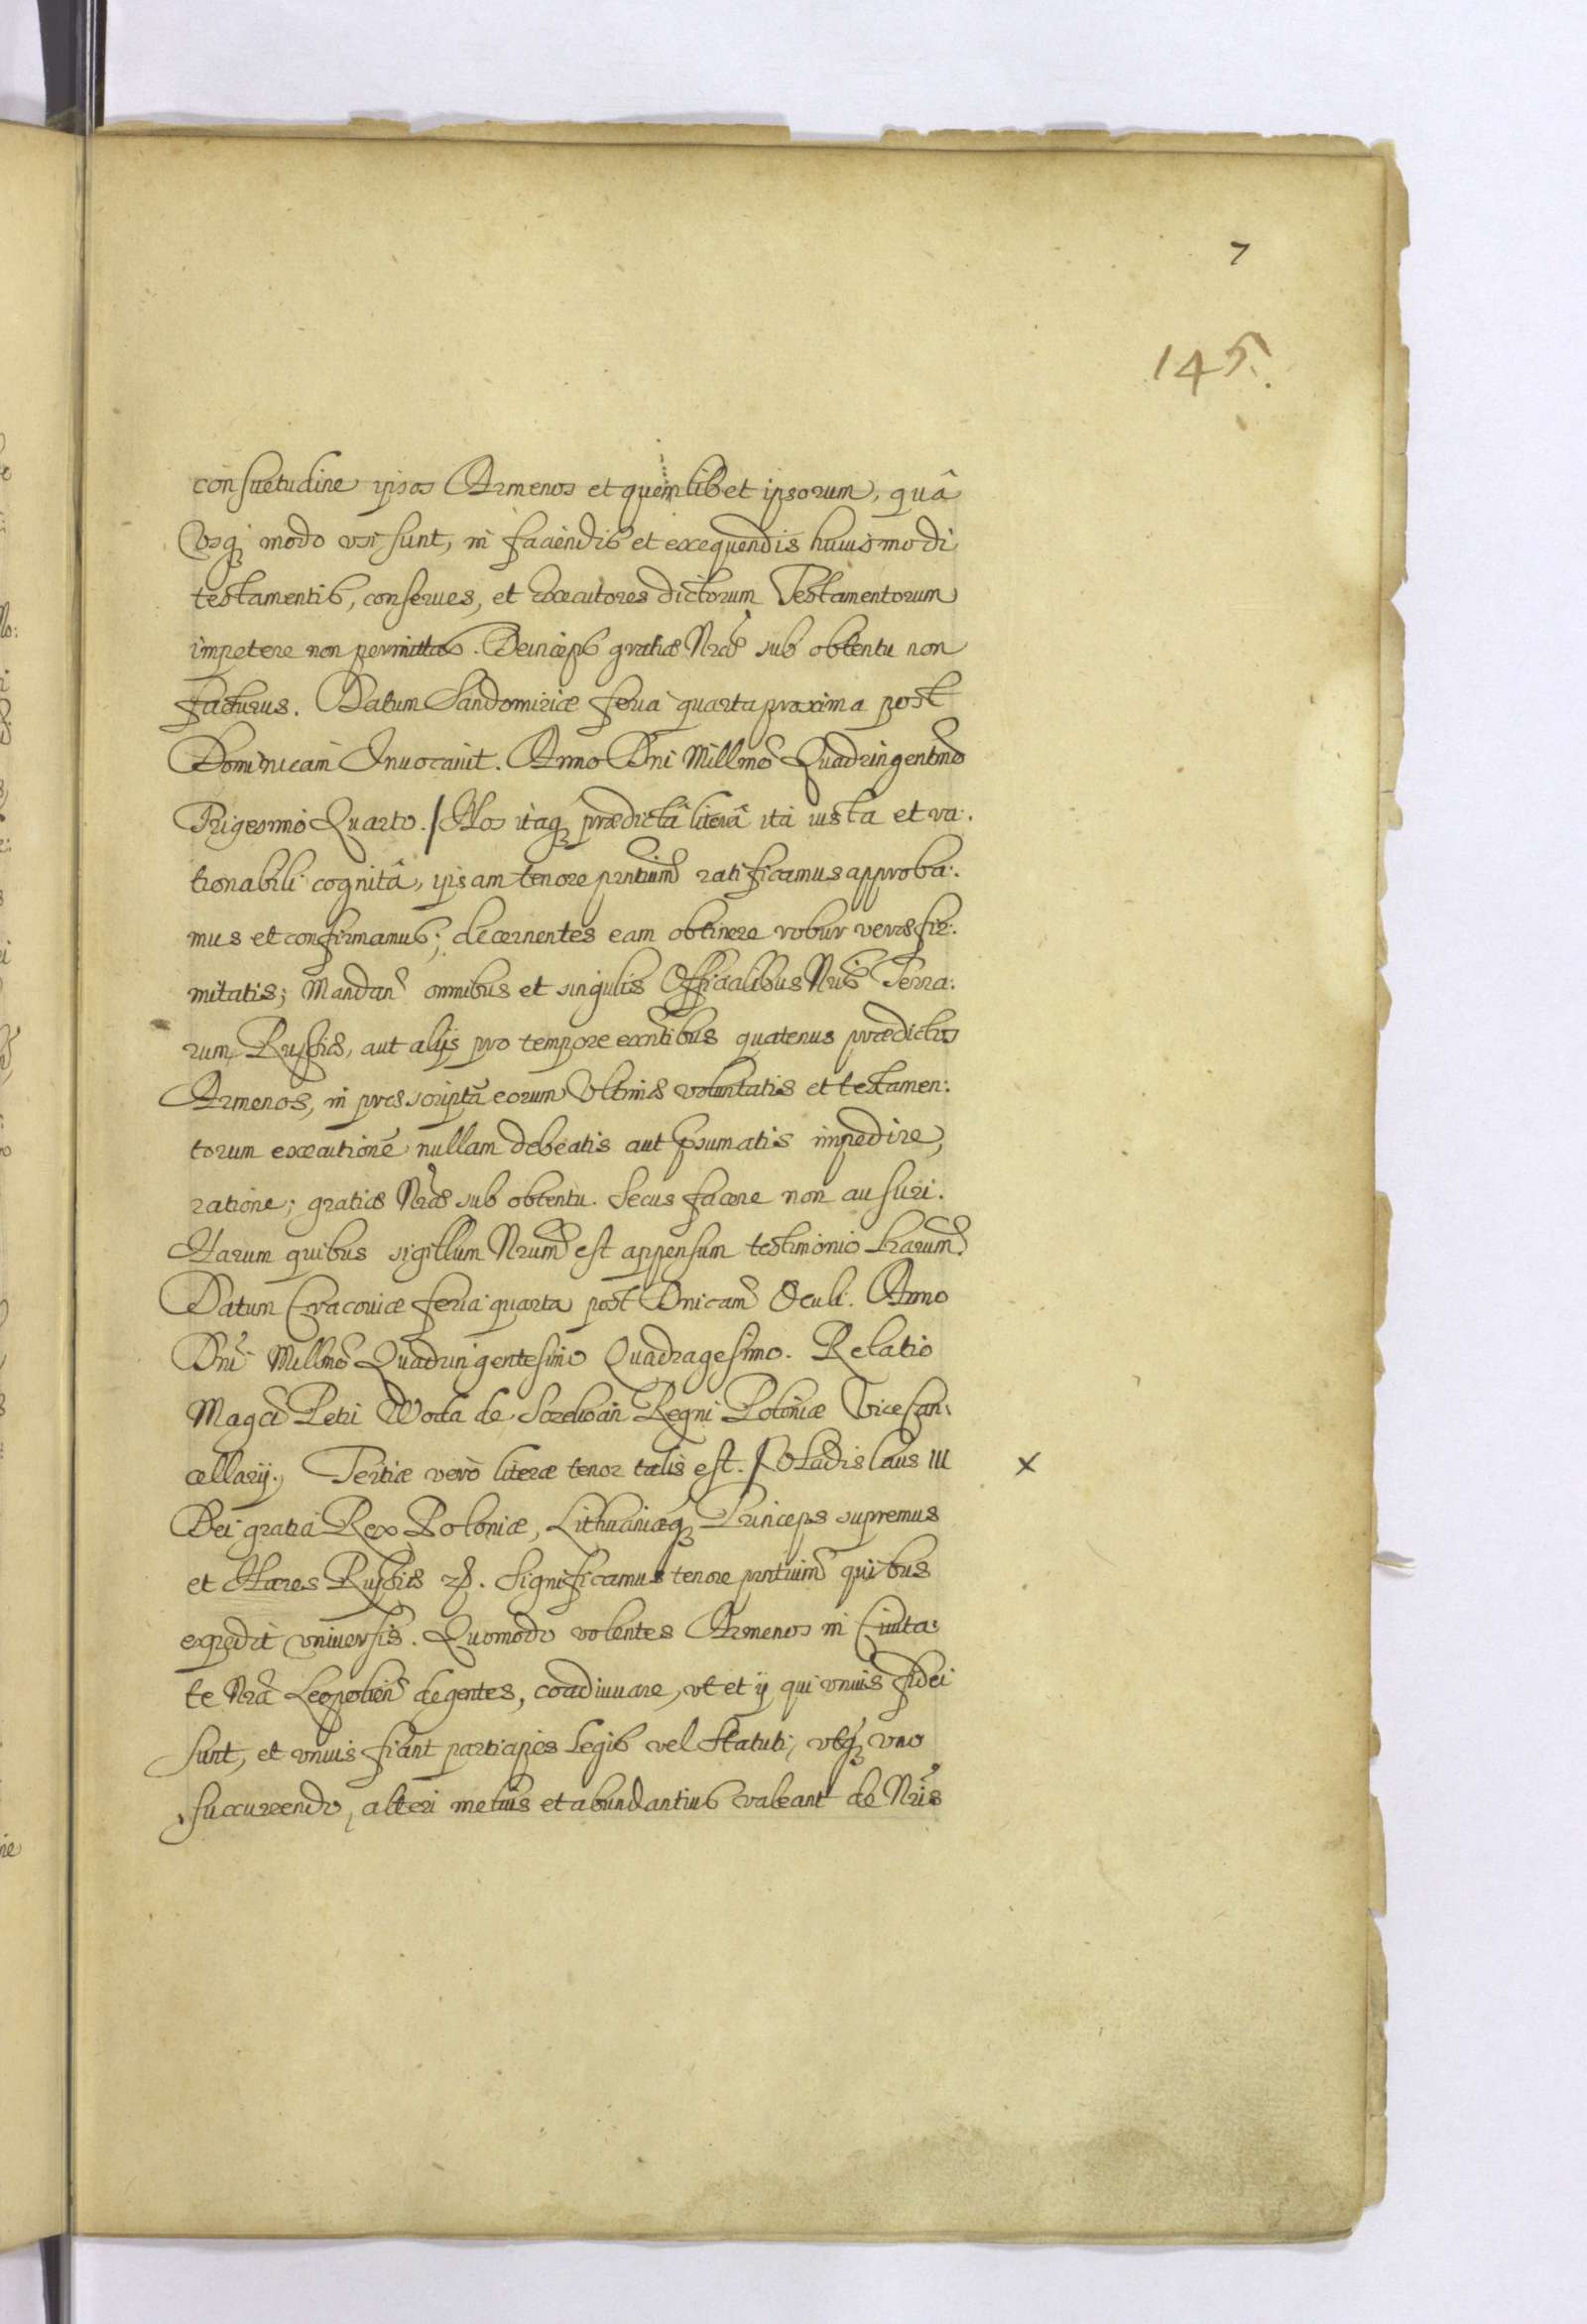 7
145.
consuetudine ipsos Armenos et quemlibet ipsorum, quâ
Vsq; modo vsi sunt, in faciendis et exequendis huiusmodi
testamentis, conserues, et Executores dictorum Testamentorum
impetere non permittas. Deinceps gratiæ Nræ sub obtentu non
facturus. Datum Sandomiriæ feria quarta proxima post
Dominicam Inuocauit. Anno Dni Millmo Quadringentmo
Trigesimo Quarto. / Nos itaq; prædictâ literâ ita iusta et ra:
tionabili cognitâ, ipsam tenore prntium ratificamus approba:
mus et confirmamus; decernentes eam obtinere robur veræ fir:
mitatis; Mandan omnibus et singulis Officialibus Nris Terra:
rum Russiæ, aut alijs pro tempore exntibus quatenus prædictos
Armenos, in præscriptâ eorum Vltimæ voluntatis et testamen:
torum executione nullam debeatis aut psumatis impedire,
ratione; gratiæ Nræ sub obtentu. Secus facere non ausuri.
Harum quibus sigillum Nrum est appensum testimonio Lrarum.
Datum Cracouiæ feria quarta post Dnicam Oculi. Anno
Dni Millmo Quadringentesimo Quadragesimo. Relatio
Magci Petri Woda de Regni Poloniæ Vicecan:
cellarij. Tertiæ verò literæ tenor talis est. / Vladislaus III
x
Dei gratia Rex Poloniæ, Lithuaniæq; Princeps supremus
et Hæres Russiæ etc. Significamus tenore prntium quibus
expedit vniuersis. Quomodo volentes Armenos in Ciuita:
te Nrâ Leopolien degentes, coadiuuare, vt et ij qui vnius fidei
sunt, et vnius fiant participes Legis vel Statuti, vtq; vno
succurrendo, alteri melius et abundantius valeant de Nris